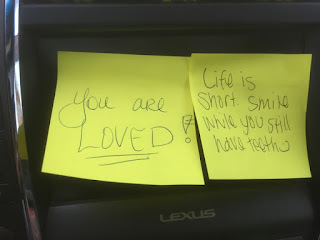 You are
LOVED!
Life is
short. Smile
while you still
have teeth
LEXUS